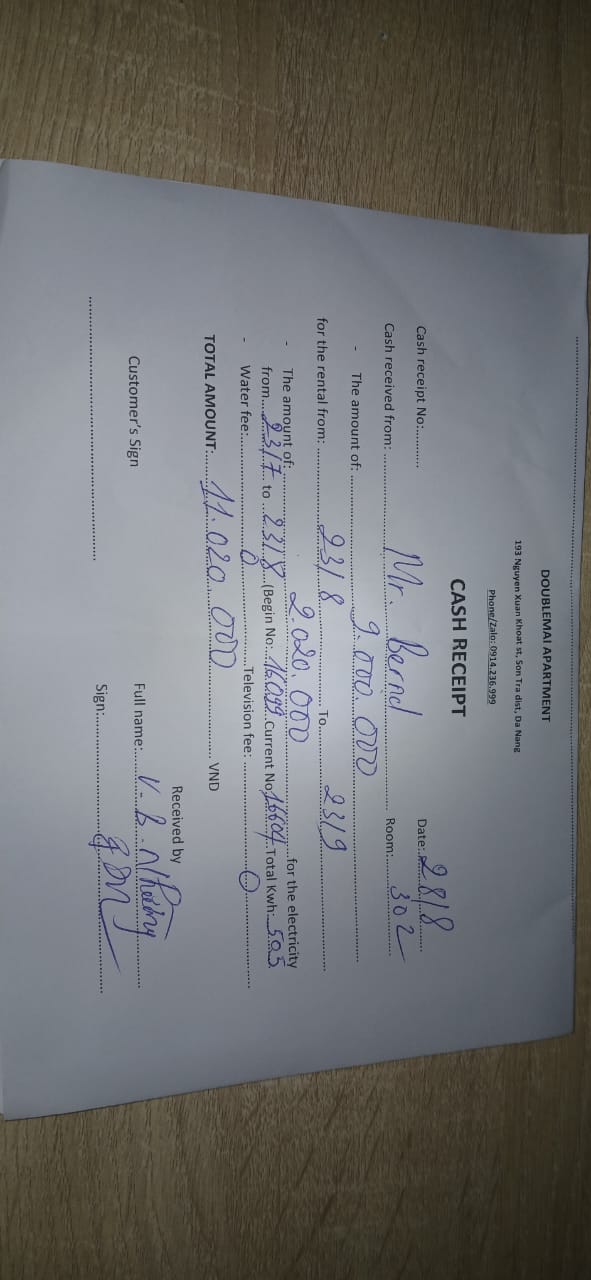 DOUBLEMAI APARTMENT
193 Nguyen Xuan Khoat st, Son Tra dist, Da Nang
Phone/Zalo: 0914.236.999
CASH RECEIPT
Cash receipt No:......... Date: 28/8
Cash received from: Mr. Bernd Room: 302
- The amount of: 9.000.000
for the rental from: 23/8 To 23/9
- The amount of: 2.020.000 for the electricity
from 23/7 to 23/8 (Begin No: 16.099 Current No: 16604 Total Kwh: 505
- Water fee: 0 Television fee: 0
TOTAL AMOUNT: 11.020.000 VND
Received by
Customer's Sign Full name:
Sign: